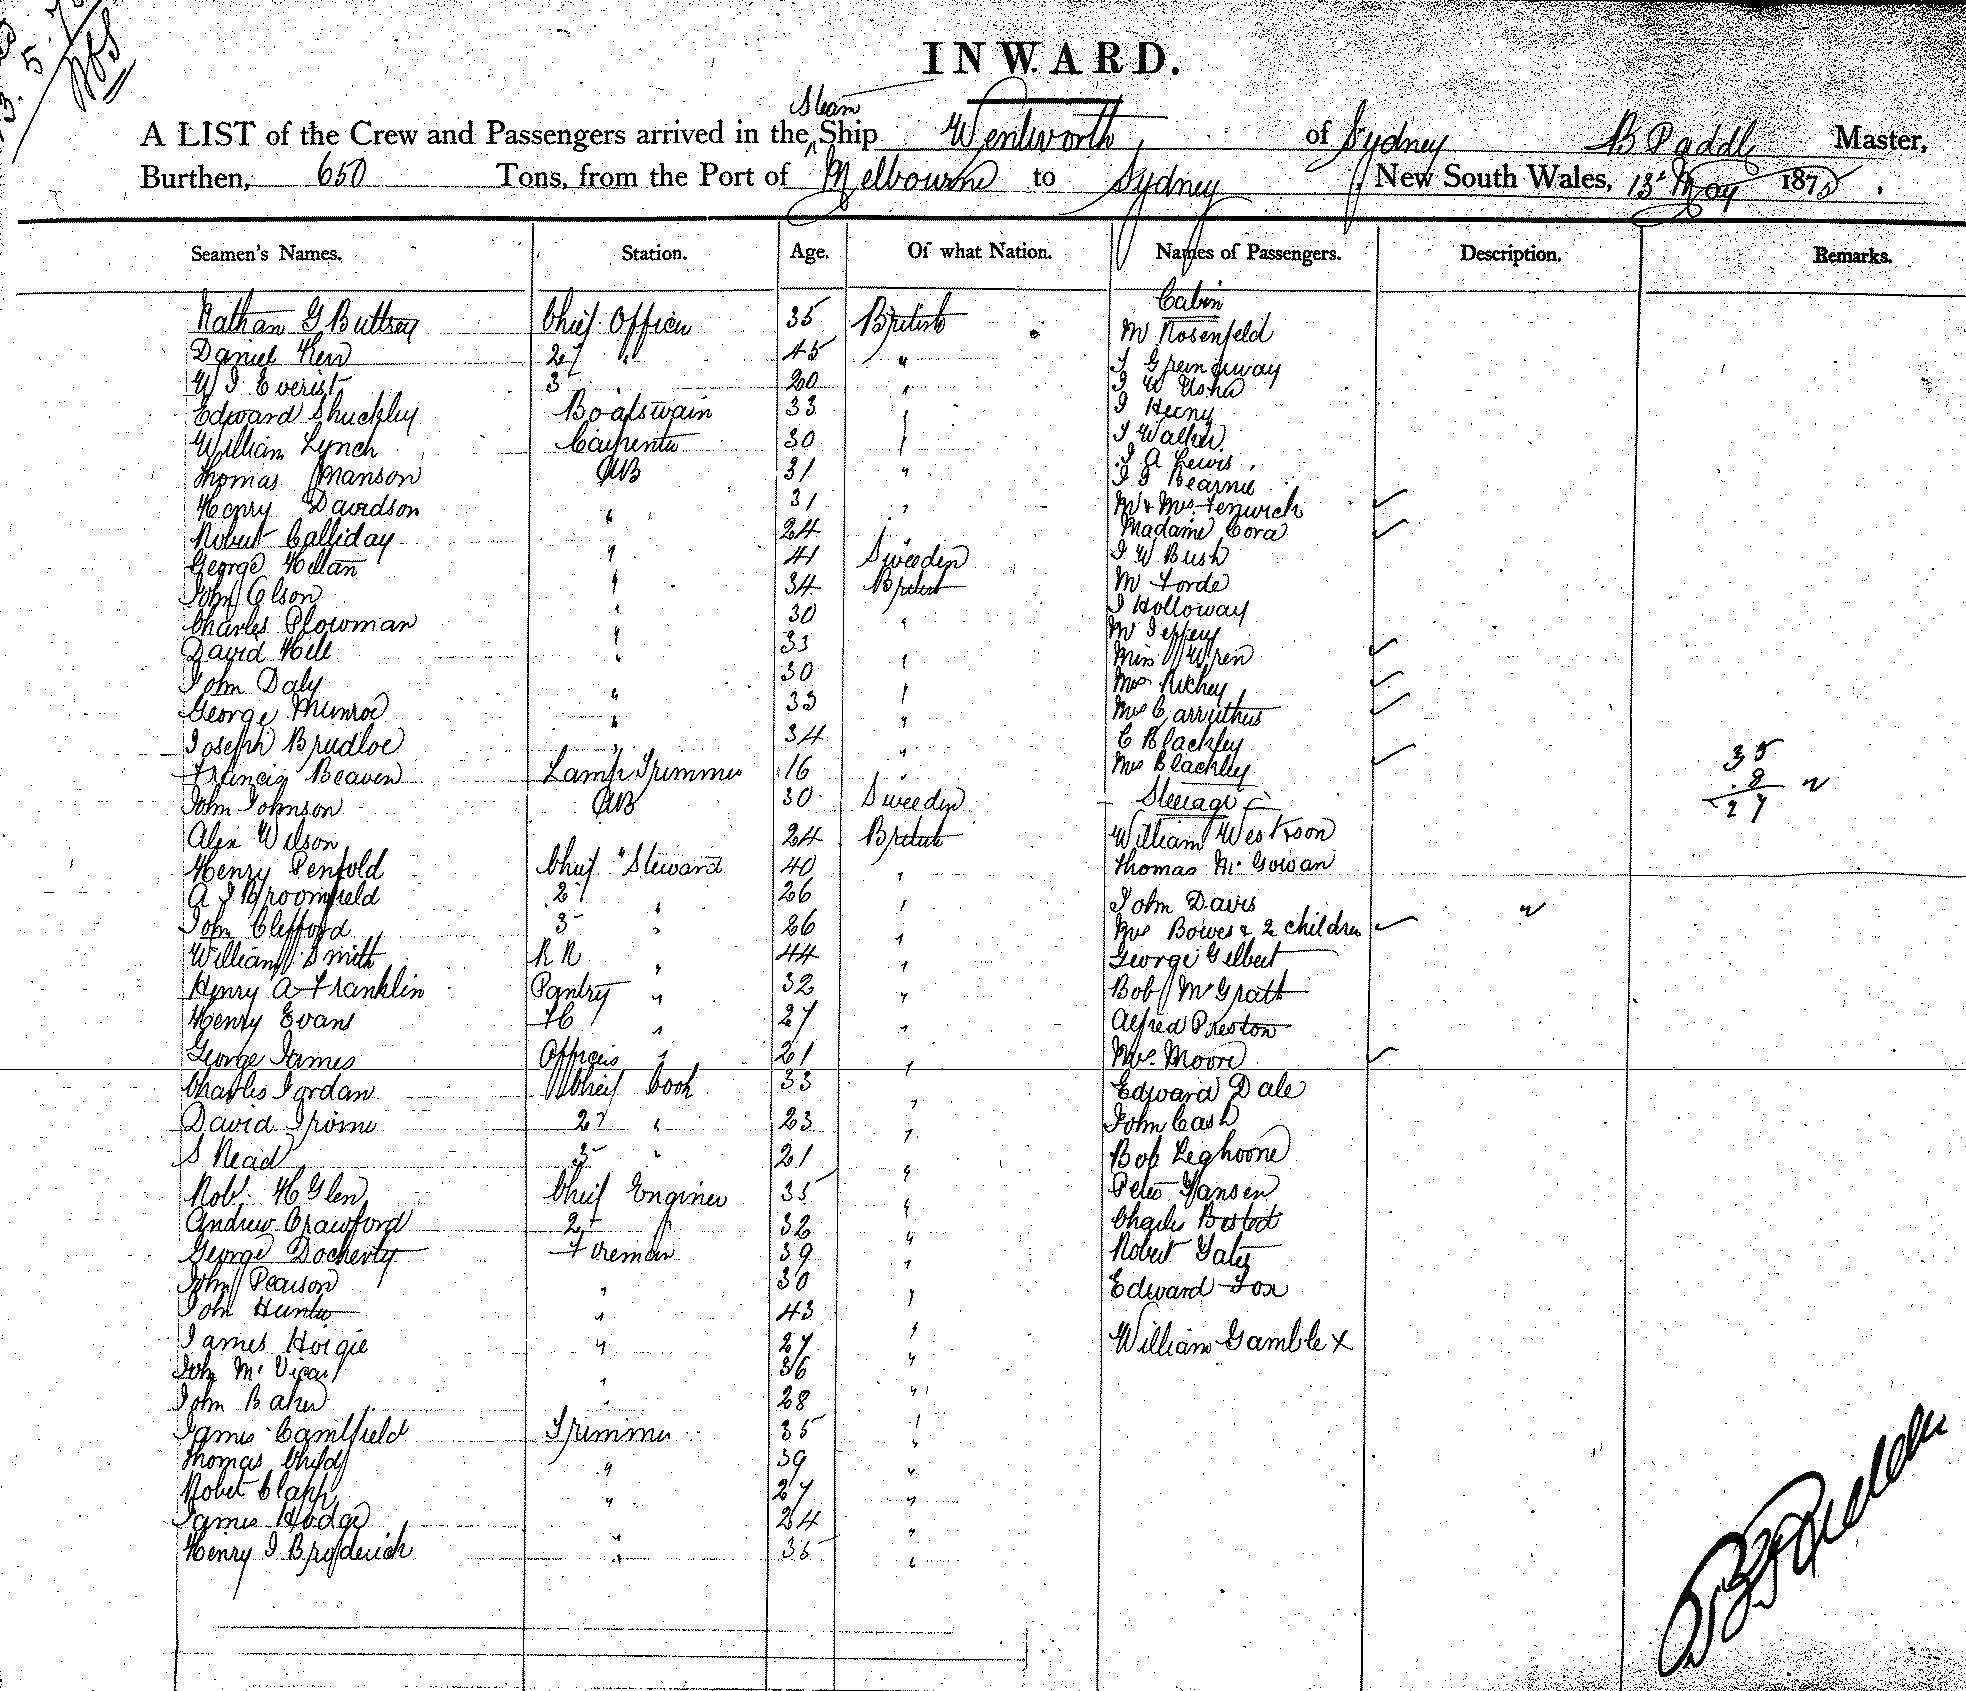 INWARD.
Steam
A LIST of the Crew and Passengers arrived in the Ship Wentworth of Sydney B Paddle Master,
Burthen, 650 Tons, from the Port of Melbourne to Sydney New South Wales, 13 May 1875.
Seamen's Names. Station. Age. Of what Nation. Names of Passengers. Description. Remarks.
Cabin
Nathan G Buttrey Chief Officer 35 British M Rosenfeld
Daniel Kerr 2d " 45 " J Greenaway
W J Everist 3 " 20 " J W
Edward Shuckley Boatswain 33 " J Heeny
William Lynch Carpenter 30 " J Walker
Thomas Manson AB 31 " J A Lewis
J J Kearnie
Henry Davidson " 31 " Mr & Mrs Fenwick
Robert Calliday " 24 " Madame Cora
George " 41 Sweeden J W Bush
John Olson " 34 British M Forde
Charles Plowman " 30 " J Holloway
David Hill " 33 " Mr Jeffery
Miss Wren
John Daly " 30 " Mrs Richey
George Munroe " 33 " Mrs Carruthus
Joseph Brudloe " 34 " C Blackley
Francis Beaven Lamp Trimmer 16 " Mrs Blackley
35
8
27
John Johnson AB 30 Sweeden Steerage
Alex Wilson " 24 British William Weston
Henry Penfold Chief Steward 40 " Thomas McGowan
A J Broomfield 2d " 26 " John Davis
John Clifford 3 " 26 " Mrs Bowes & 2 children
William Smith R R " 44 " George Gilbert
Henry A Franklin Pantry " 32 " Bob McGrath
Henry Evans FC " 27 " Alfred Preston
George James Officers " 21 " Mrs. Moore
Charles Jordan Chief Cook 33 " Edward Dale
David 2d " 23 " John Cash
S Read 3 " 21 " Bob Leghoone
Robt H Glen Chief Enginer 35 " Peter Yansen
Andrew Crawford 2d " 32 " Charles
George Docherty Fireman 39 " Robert Yates
John Pearson " 30 " Edward Fox
John Hunter " 43 "
James Hoigie " 27 " William Gamble x
John McVicar " 36 "
John Baker " 28 "
James Camlfield Trimmer 35 "
Thomas Child " 39 "
Robet Clapp " 27 "
James Hodge " 24 "
Henry J Broderick " 35 "